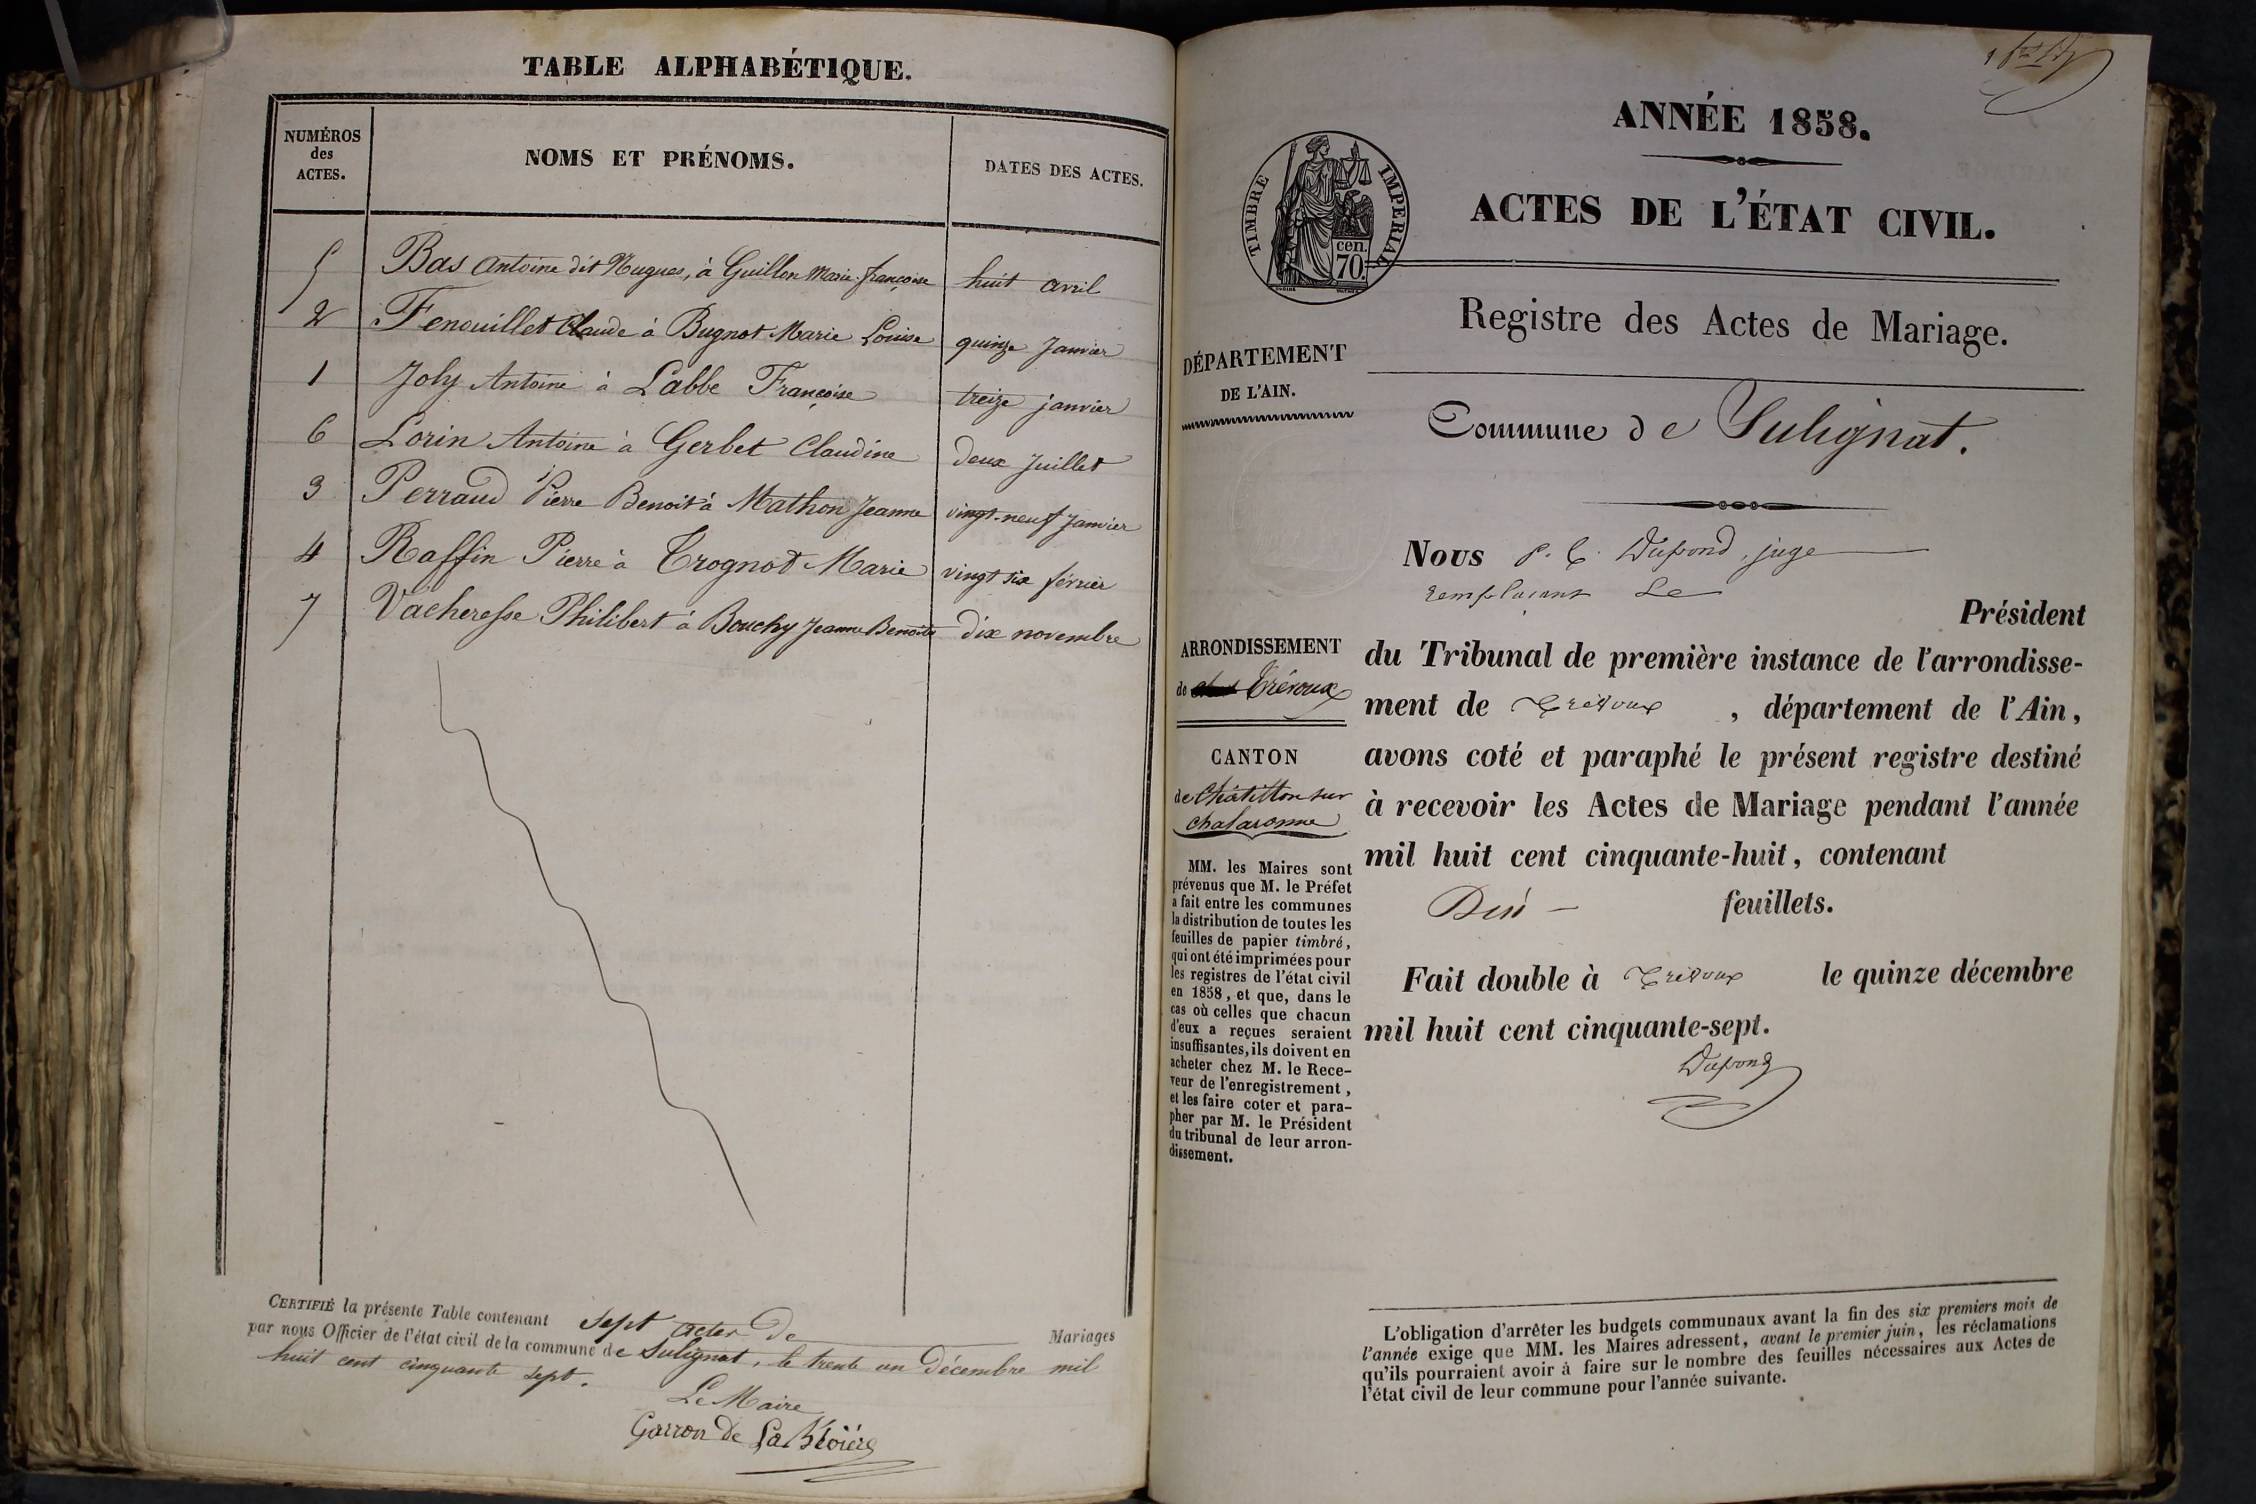 TABLE ALPHABÉTIQUE.
NUMÉROS
des
ACTES.
NOMS ET PRÉNOMS.
DATES DES ACTES.
5 Bas Antoine dit Nugues, à Guillon Marie françoise huit avril
2 Fenouillet Claude à Bugnot Marie Louise quinze Janvier
1 Joly Antoine à Labbe Françoise treize janvier
6 Lorin Antoine à Gerbet Claudine deux Juillet
3 Perraud Pierre Benoit à Mathon Jeanne vingt-neuf Janvier
4 Raffin Pierre à Trognot Marie vingt six février
7 Vacheresse Philibert à Bouchy Jeanne Benoite dix novembre
CERTIFIÉ la présente Table contenant sept actes de Mariages
par nous Officier de l'état civil de la commune de Sulignat, le trente un Décembre mil
huit cent cinquante sept.
Le Maire
Garron de La Bévière
ANNÉE 1858.
TIMBRE IMPERIAL
cen.
70.
ACTES DE L'ÉTAT CIVIL.
Registre des Actes de Mariage.
DÉPARTEMENT
DE L'AIN.
Commune de Sulignat.
Nous P. C. Dupond, juge
remplaçant Le
Président
du Tribunal de première instance de l'arrondisse-
ment de Trévoux, département de l'Ain,
avons coté et paraphé le présent registre destiné
à recevoir les Actes de Mariage pendant l'année
mil huit cent cinquante-huit, contenant
Dix feuillets.
Fait double à Trévoux le quinze décembre
mil huit cent cinquante-sept.
Dupond
ARRONDISSEMENT
de Trévoux
CANTON
de Châtillon sur
chalaronne
MM. les Maires sont
prévenus que M. le Préfet
a fait entre les communes
la distribution de toutes les
feuilles de papier timbré,
qui ont été imprimées pour
les registres de l'état civil
en 1858, et que, dans le
cas où celles que chacun
d'eux a reçues seraient
insuffisantes, ils doivent en
acheter chez M. le Rece-
veur de l'enregistrement,
et les faire coter et para-
pher par M. le Président
du tribunal de leur arron-
dissement.
L'obligation d'arrêter les budgets communaux avant la fin des six premiers mois de
l'année exige que MM. les Maires adressent, avant le premier juin, les réclamations
qu'ils pourraient avoir à faire sur le nombre des feuilles nécessaires aux Actes de
l'état civil de leur commune pour l'année suivante.